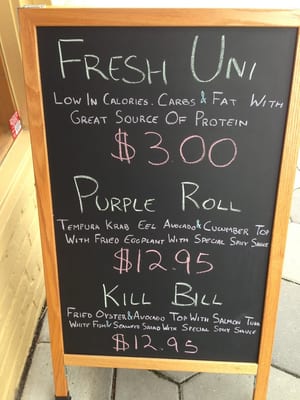 Fresh Uni
Low In Calories. Carbs & Fat With
Great Source Of Protein
$3.00
Purple Roll
Tempura Krab Eel Avocado & Cucumber Top
With Fried Eggplant With Special Spicy Sauce
$12.95
Kill Bill
Fried Oyster & Avocado Top With Salmon Tuna
White Fish & Seaweed Salad With Special Spicy Sauce
$12.95